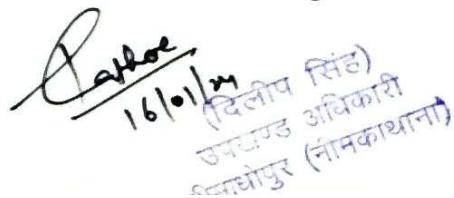 16/01/24
(दिलीप सिंह)
उपखण्ड अधिकारी
श्रीमाधोपुर (नीमकाथाना)